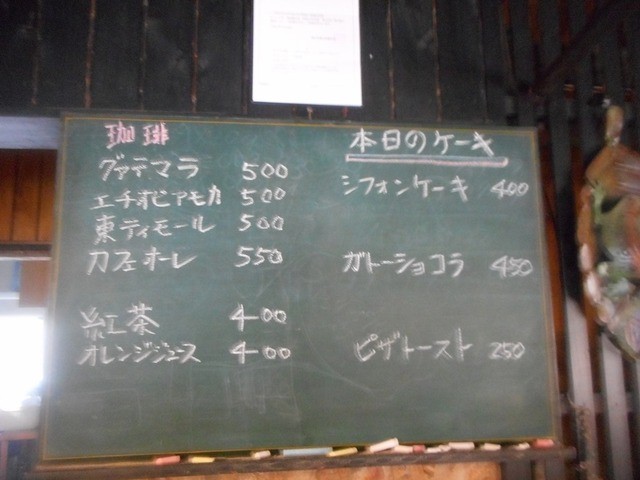 珈琲
グァテマラ 500
エチオピアモカ 500
東ティモール 500
カフェオーレ 550
紅茶 400
オレンジジュース 400
本日のケーキ
シフォンケーキ 400
ガトーショコラ 450
ピザトースト 250